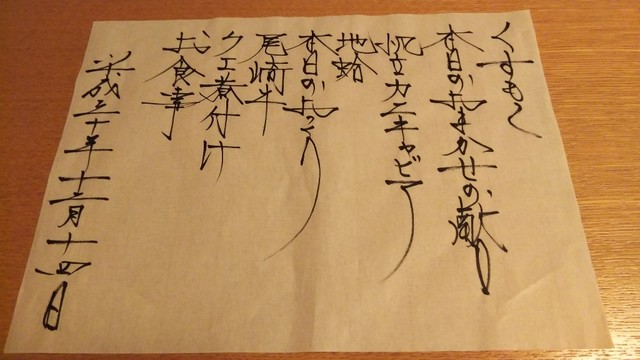 くすもと
本日のおまかせの献立
帆立カニキャビア
地蛤
本日のお造り
尾崎牛
クエ煮付け
お食事
平成三十年十二月十四日